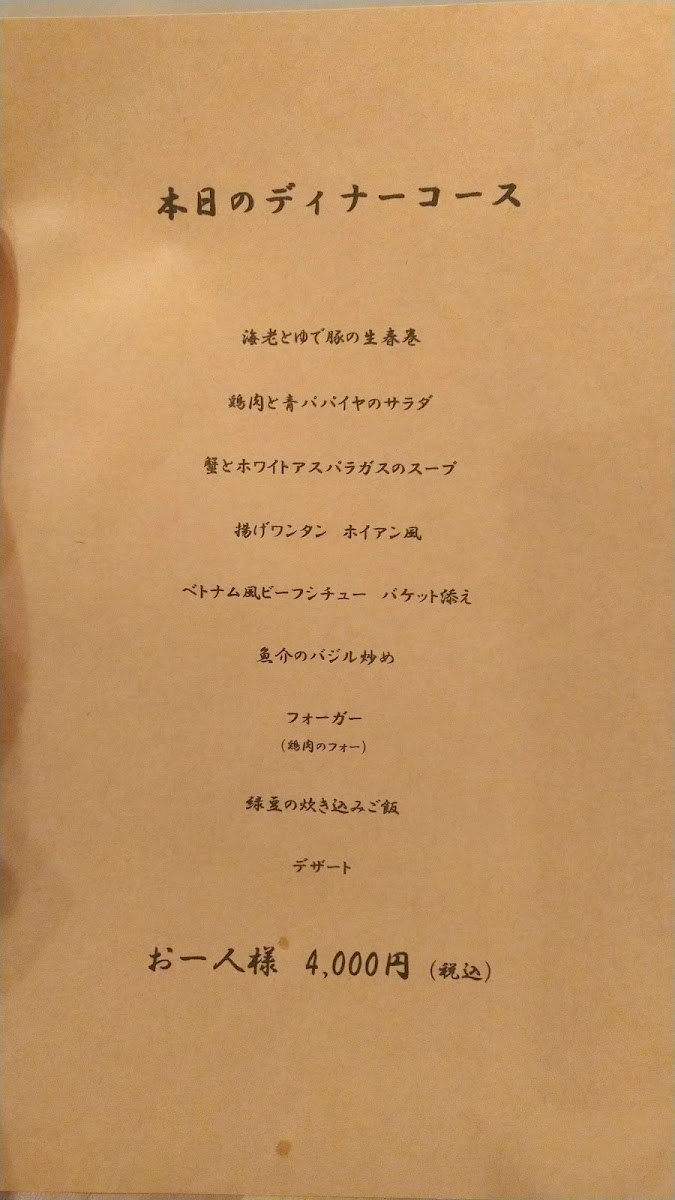 本日のディナーコース
海老とゆで豚の生春巻
鶏肉と青パパイヤのサラダ
蟹とホワイトアスパラガスのスープ
揚げワンタン ホイアン風
ベトナム風ビーフシチュー バケット添え
魚介のバジル炒め
フォーガー
(鶏肉のフォー)
緑豆の炊き込みご飯
デザート
お一人様 4,000円 (税込)